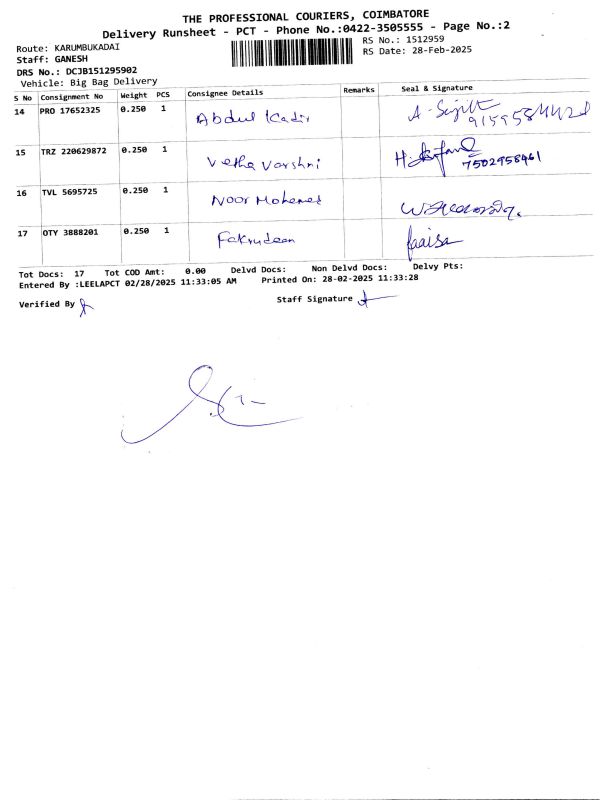 THE PROFESSIONAL COURIERS, COIMBATORE
Delivery Runsheet - PCT - Phone No.:0422-3505555 - Page No.:2
Route: KARUMBUKADAI
RS No.: 1512959
Staff: GANESH
RS Date: 28-Feb-2025
DRS No.: DCJB151295902
Vehicle: Big Bag Delivery
S No Consignment No Weight PCS Consignee Details Remarks Seal & Signature
14 PRO 17652325 0.250 1 Abdul Kadir
15 TRZ 220629872 0.250 1 Vetha Varshni 7502958461
16 TVL 5695725 0.250 1 Noor Mohamed
17 OTY 3888201 0.250 1 Fakrudeen
Tot Docs: 17 Tot COD Amt: 0.00 Delvd Docs: Non Delvd Docs: Delvy Pts:
Entered By :LEELAPCT 02/28/2025 11:33:05 AM Printed On: 28-02-2025 11:33:28
Verified By Staff Signature